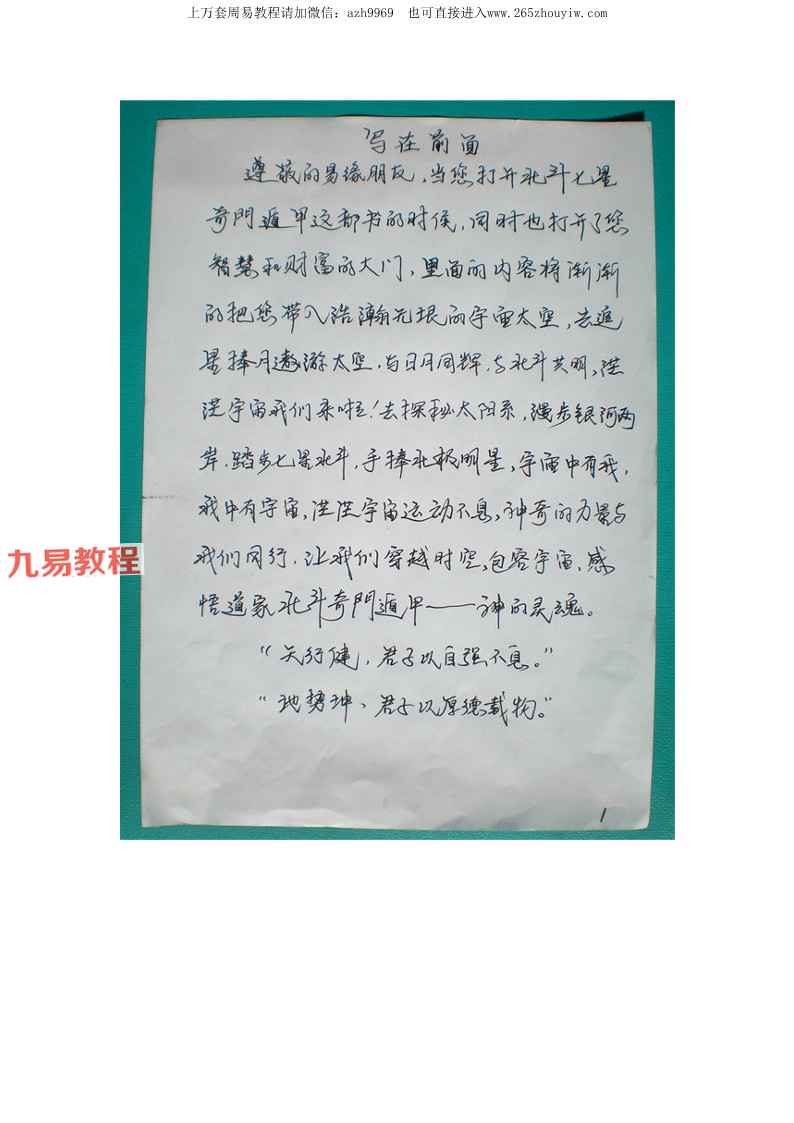 上万套周易教程请加微信：azh9969 也可直接进入www.265zhouyiw.com
写在前面
遵敬的易缘朋友，当您打开北斗七星
奇門遁甲这部书的时侯，同时也打开了您
智慧和财富的大门，里面的内容将渐渐
的把您带入浩瀚无垠的宇宙太空，去追
星捧月遨游太空，与日月同辉，与北斗共明，茫
茫宇宙我们来啦！去探秘太阳系，漫步银河两
岸，踏步七星北斗，手捧北极明星，宇宙中有我，
我中有宇宙，茫茫宇宙运动不息，神奇的力量与
我们同行，让我们穿越时空，包容宇宙，感
悟道家北斗奇門遁甲——神的灵魂。
“天行健，君子以自强不息。”
“地势坤、君子以厚德载物。”
九易教程
1